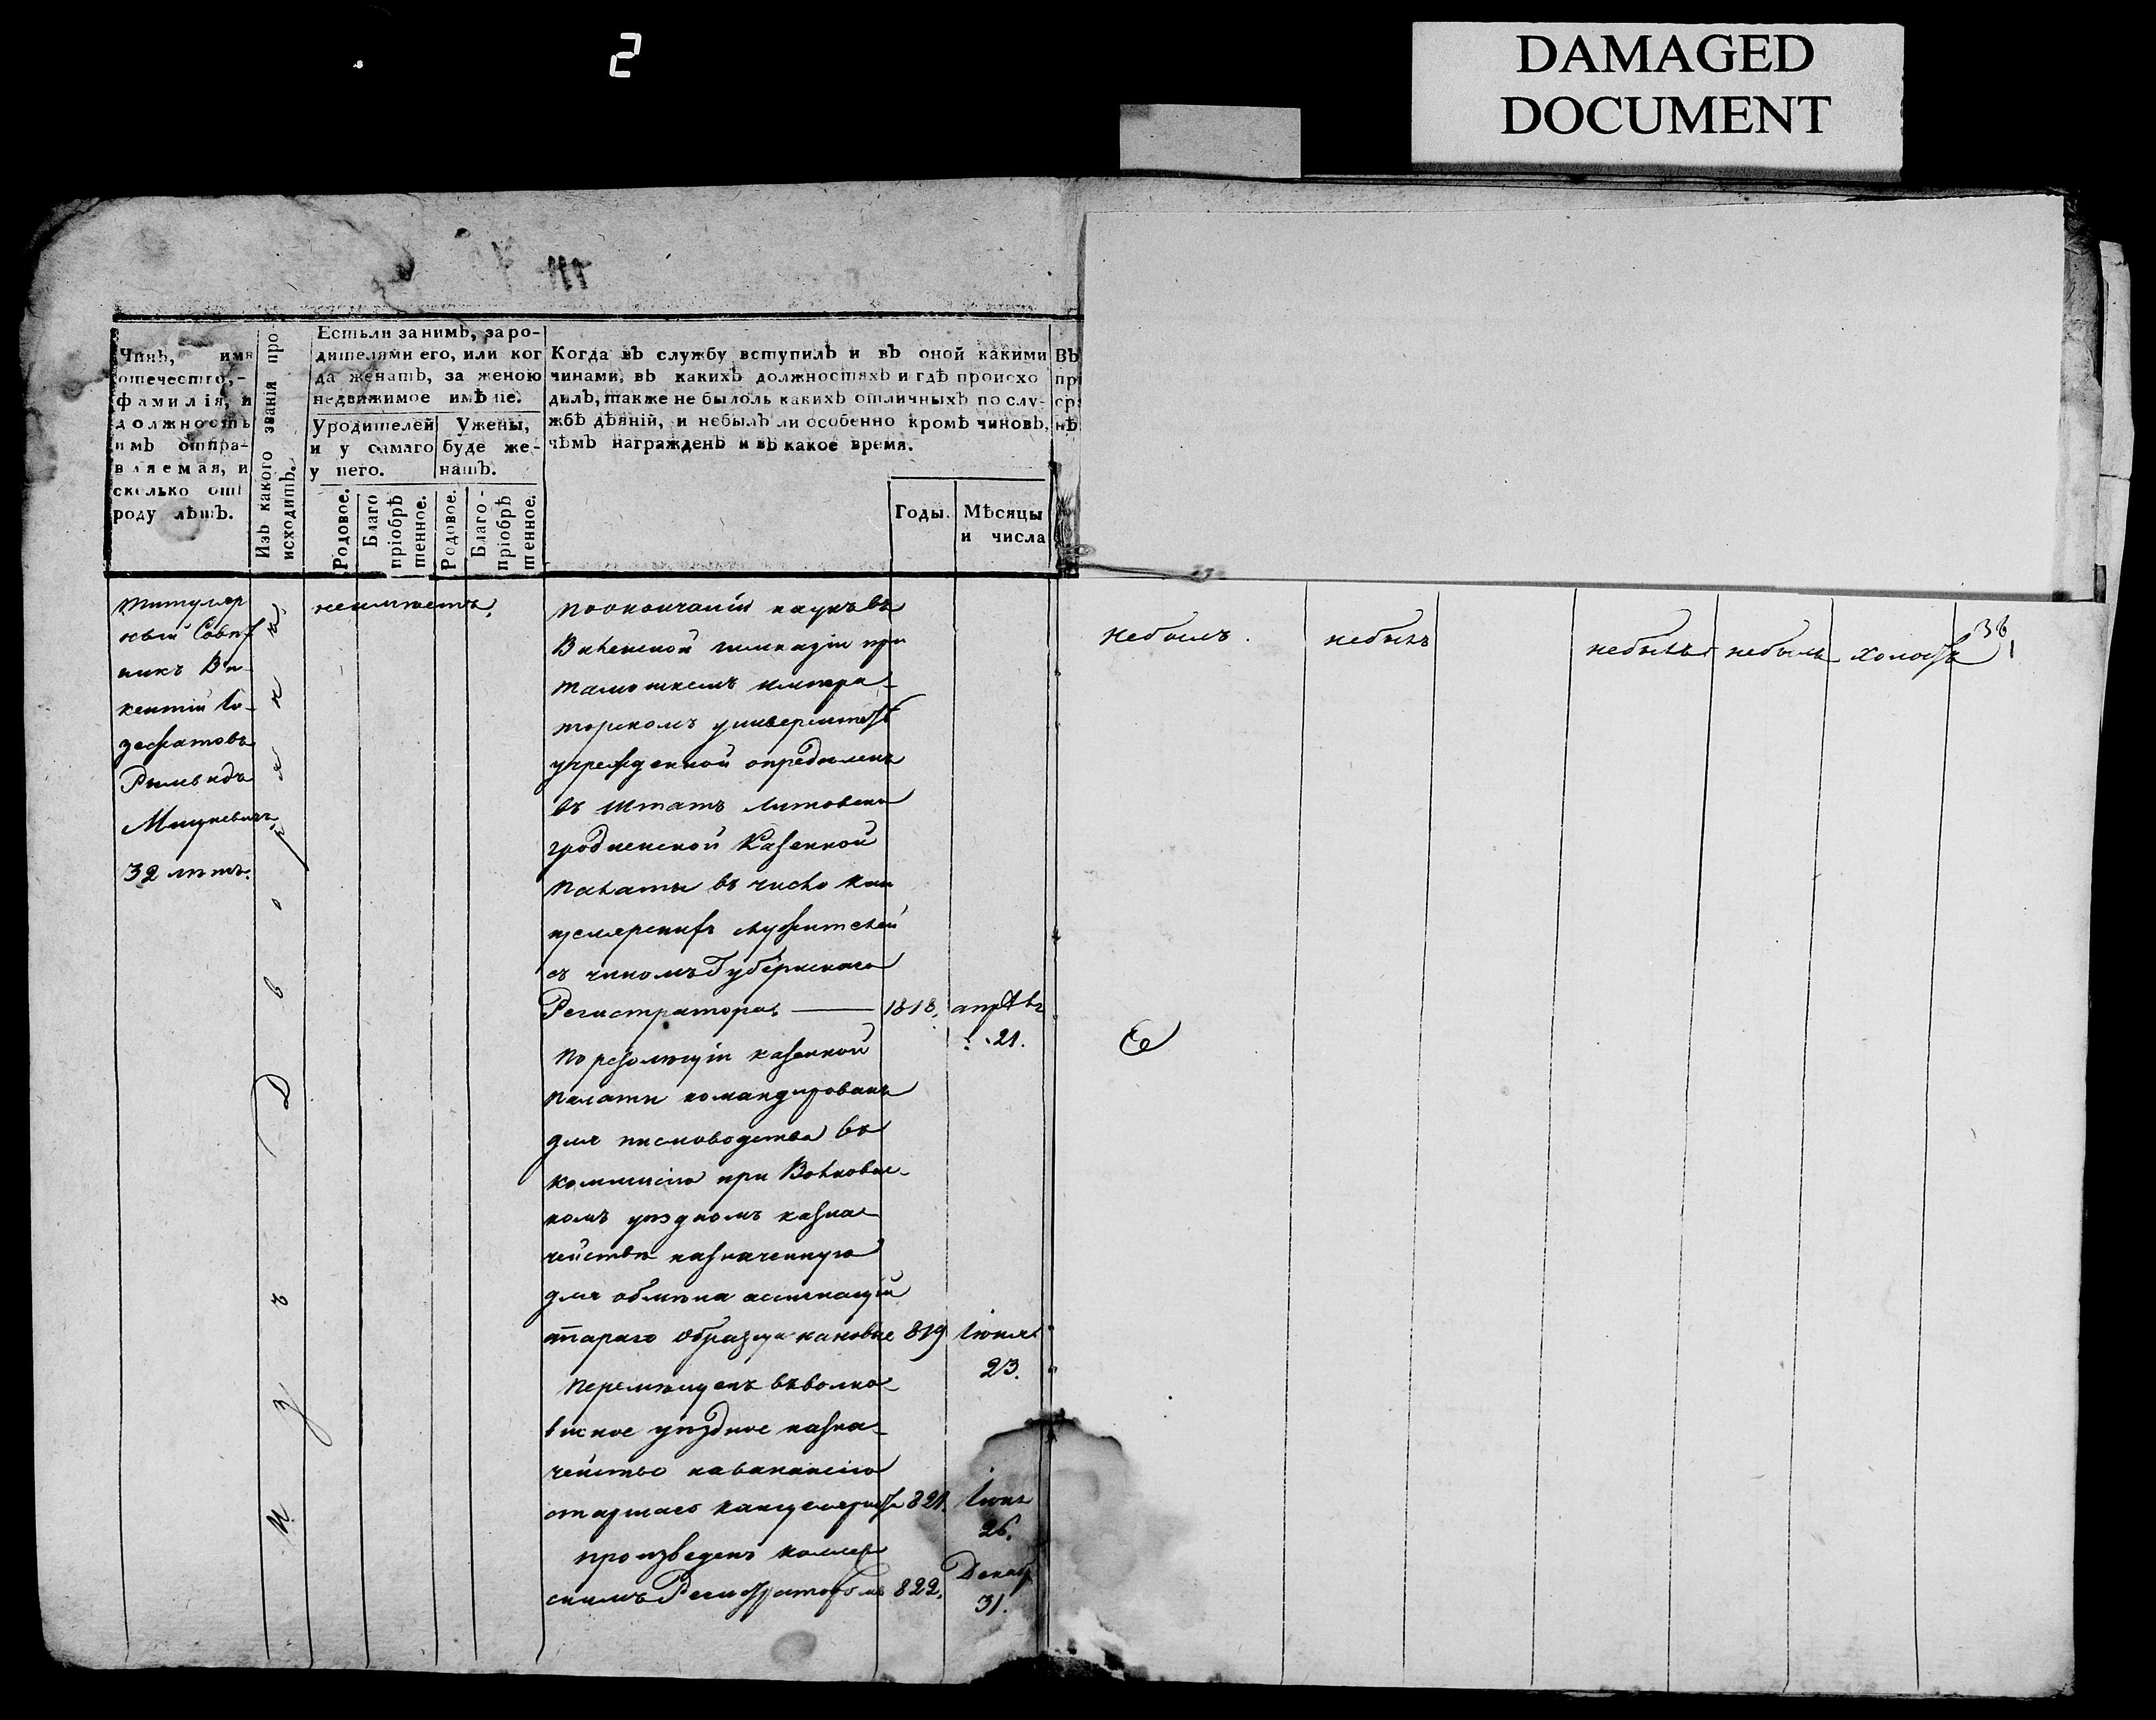 2
DAMAGED
DOCUMENT
Чинъ, имя
отечество,-
фамилія, и
должность
имъ отпра-
вляемая, и
сколько отъ
роду лѣтъ.
Изъ какого званія про-
исходитъ.
Естьли за нимъ, за ро-
дителями его, или ког
да женатъ, за женою
недвижимое имѣніе.
Уродителей
и у самаго
у него.
Ужены,
буде же-
натъ.
Родовое.
Благо
пріобрѣ
тенное.
Родовое.
Благо-
пріобрѣ
тенное.
Когда въ службу вступилъ и въ оной какими
чинами, въ какихъ должностяхъ и гдѣ происхо
дилъ, также не былоль какихъ отличныхъ по слу-
жбѣ дѣяній, и небылъ ли особенно кромѣ чиновъ,
чѣмъ награжденъ и въ какое время.
Годы.
Мѣсяцы
и числа
Въ
пр
ср
нѣ
Титуляр
ный Совѣт
никъ Ви-
кентій Іо-
зефатовъ
Рымвидъ
Мицкевичъ
32 лѣтъ.
Изъ Дворянъ
неимѣетъ
поокончаніи наукъ въ
Виленской гимназіи при
тамошнемъ импера-
торскомъ университетѣ
учрежденной опредѣленъ
въ штатъ Литовско
гродненской Казенной
Палаты въ число кан
целярскихъ служителей
съ чиномъ Губернскаго
Регистратора — 1818. апрѣль
21.
По резолюціи казенной
палаты командированъ
для писмоводства въ
коммисію при Волковыс-
комъ уѣздномъ казна-
чействѣ назначенную
для обмѣна ассигнацій
стараго образца нановые 819 Іюня
23.
Перемѣщенъ въ волко-
выское уѣздное казна-
чейство навакансію
старшаго канцеляриста 821. Іюня
26.
произведенъ коллеж
скимъ Регистраторомъ 822. Декаб
31.
небылъ.
небылъ
небылъ
небылъ
холостъ
36